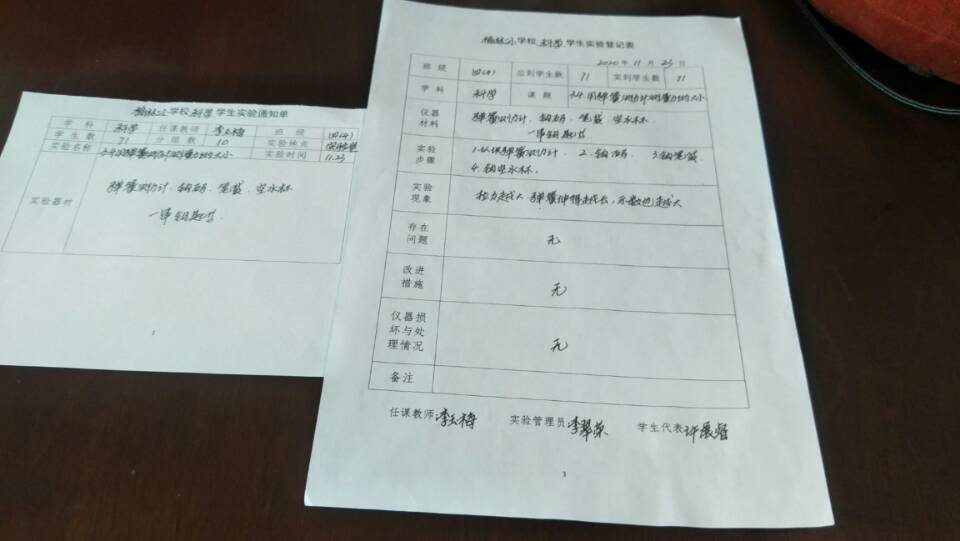 学校科学学生实验通知单
学科 科学 任课教师 李玉梅 班级 四(4)
学生数 71 分组数 10 实验地点 实验室
实验名称 3.4.用弹簧测力计测量力的大小 实验时间 11.23
实验器材
弹簧测力计、钩码、笔袋、空水杯
一串钥匙等
1
学校科学学生实验登记表
2020年11月23日
班级 四(4) 应到学生数 71 实到学生数 71
学科 科学 课题 3.4.用弹簧测力计测量力的大小
仪器材料 弹簧测力计、钩码、笔袋、空水杯、
一串钥匙等
实验步骤 1.认识弹簧测力计、 2.钩码、 3.钩笔袋
4.钩空水杯。
实验现象 拉力越大 弹簧伸得越长,示数也越大
存在问题 无
改进措施 无
仪器损坏与处理情况 无
备注
任课教师 李玉梅 实验管理员 李翠荣 学生代表 许
3